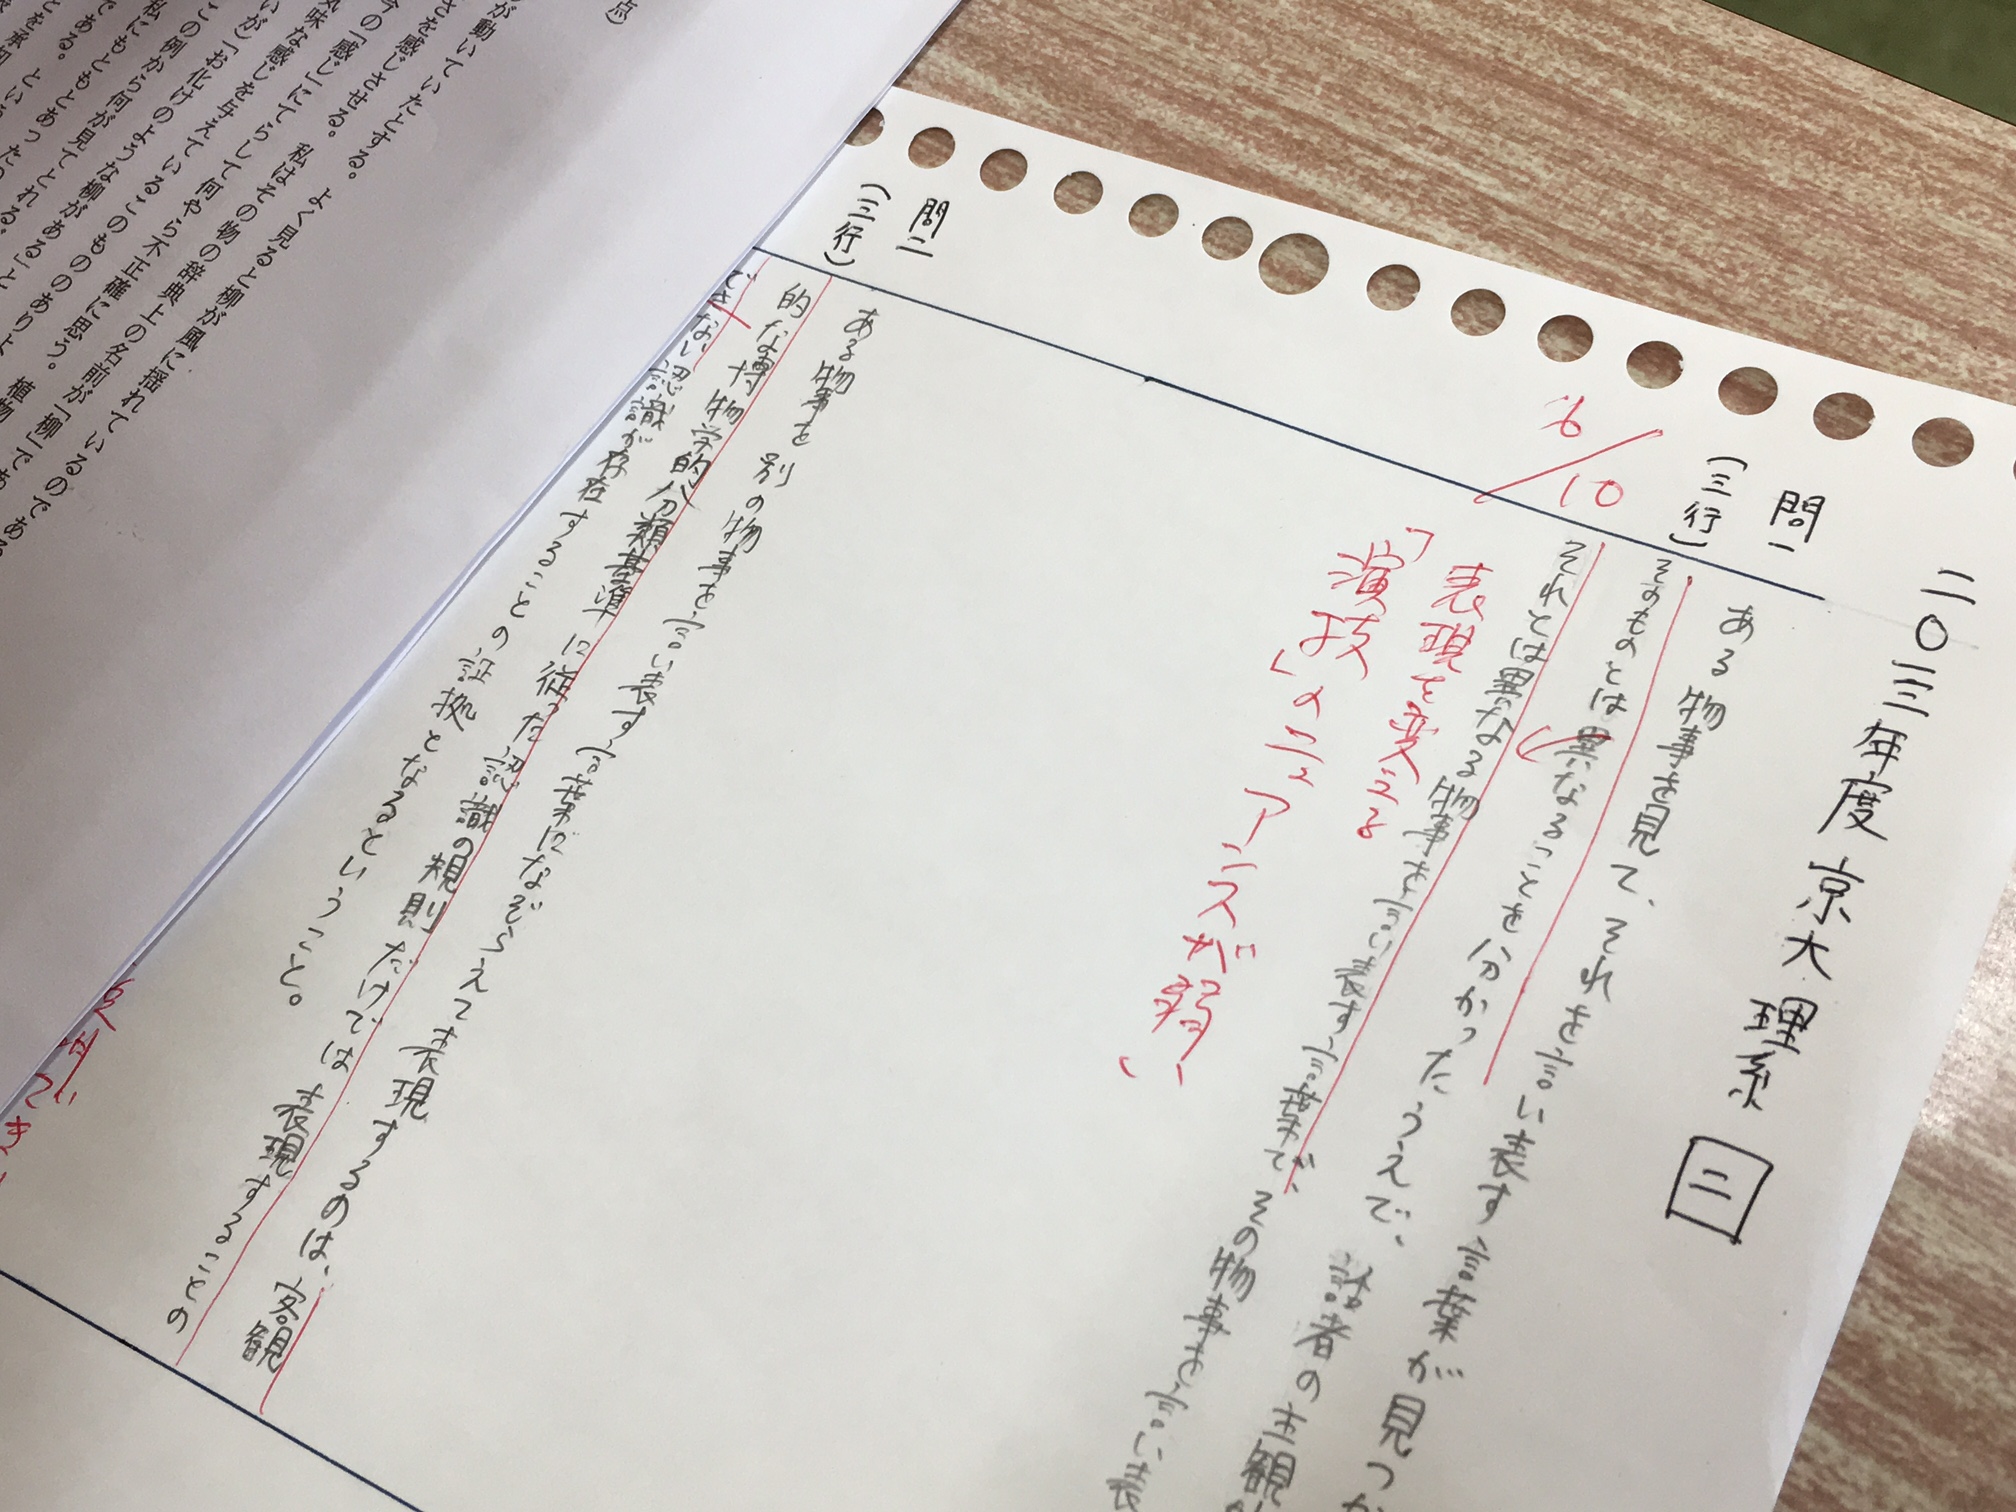 二〇二三年度 京大理系 二
問一
(三行)
ある物事を見て、それを言い表す言葉が見つ
そのものとは異なることを分かったうえで、話者の主観
それとは異なる物事を言い表す言葉で、その物事を言い表
6/10
表現を変える
「演技」のニュアンスが弱い
問二
(三行)
ある物事を別の物事を言い表す言葉になぞらえて表現するのは、客観
的な博物学的分類基準に従った認識の規則だけでは表現することの
できない認識が存在することの証拠となるということ。
点)
が動いていたとする。よく見ると柳が風に揺れているのである
さを感じさせる。私はその物の辞典上の名前が「柳」であ
今の「感じ」にてらして何やら不正確に思う。植物
気味な感じを与えているこのもののありよ
いが)「お化けのような柳がある」と
この例から何が見てとれる。
私にもともとあった
である。という